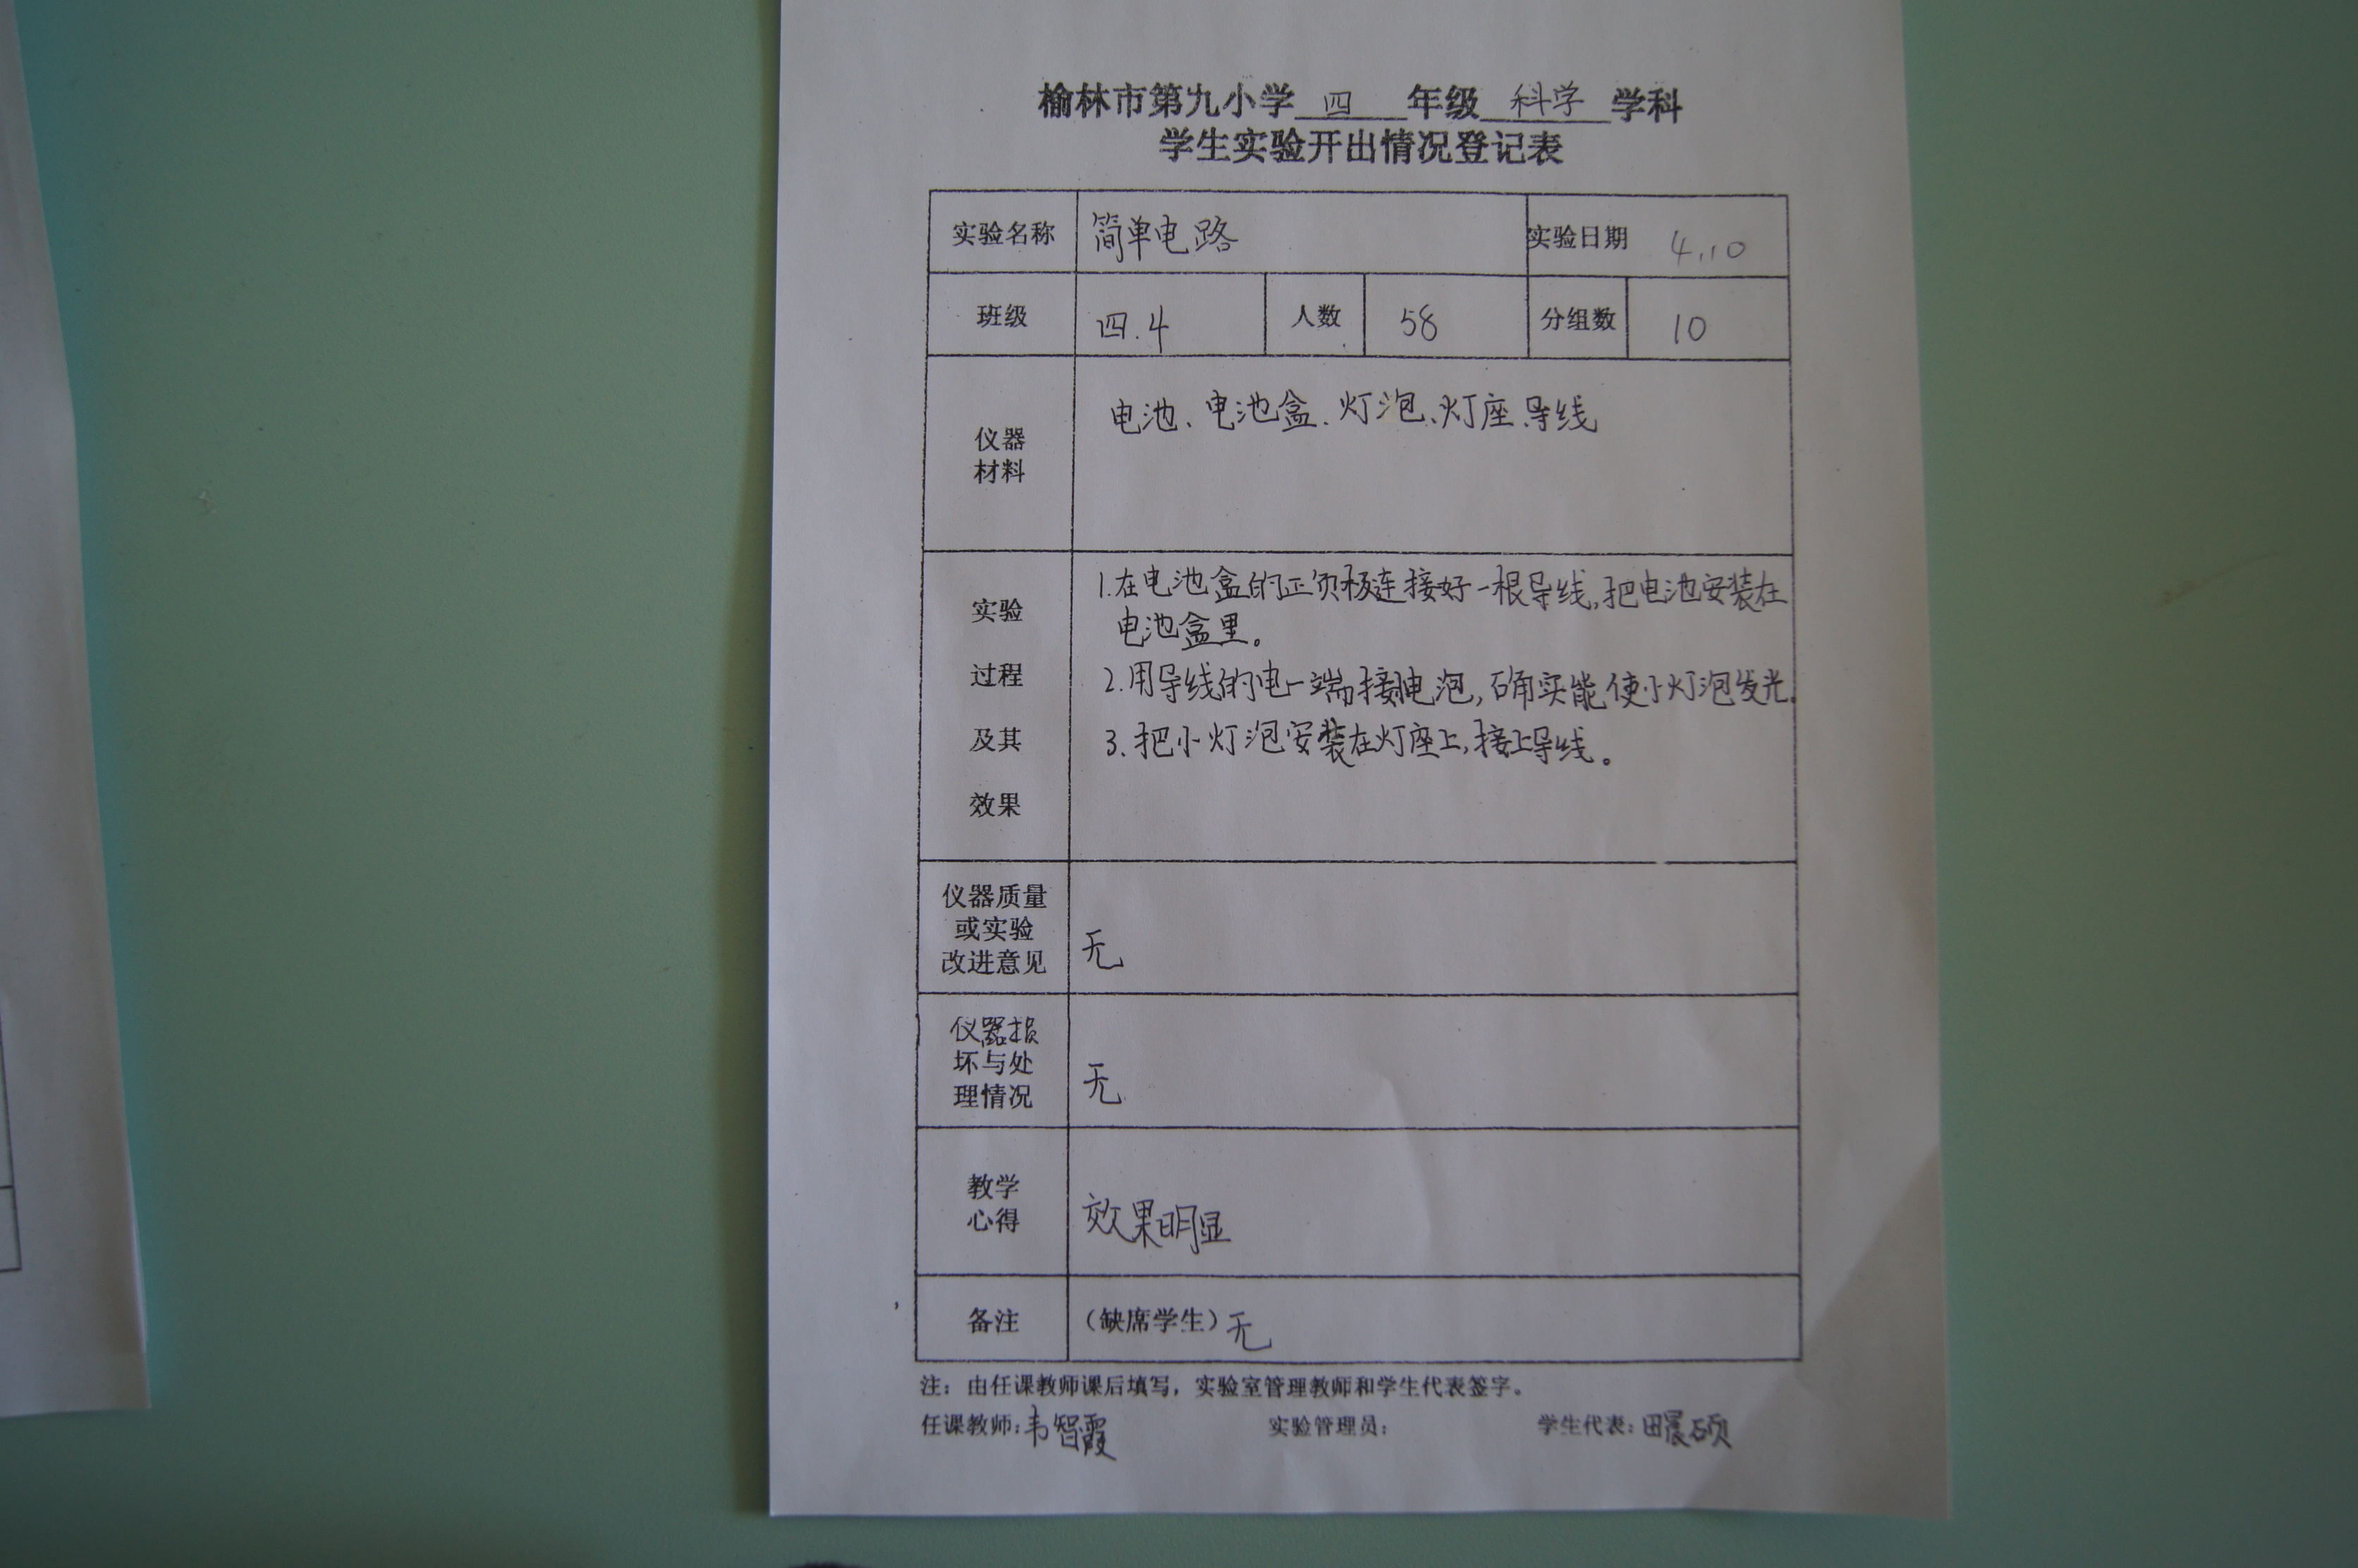 榆林市第九小学 四 年级 科学 学科
学生实验开出情况登记表
实验名称 简单电路 实验日期 4.10
班级 四.4 人数 58 分组数 10
仪器
材料
电池、电池盒、灯泡、灯座、导线
实验
过程
及其
效果
1.在电池盒的正负极连接好一根导线,把电池安装在
电池盒里。
2.用导线的电一端接电泡,确实能使小灯泡发光.
3.把小灯泡安装在灯座上,接上导线。
仪器质量
或实验
改进意见
无
仪器损
坏与处
理情况
无
教学
心得
效果明显
备注 (缺席学生)无
注：由任课教师课后填写，实验室管理教师和学生代表签字。
任课教师:韦智霞 实验管理员: 学生代表:田晨硕